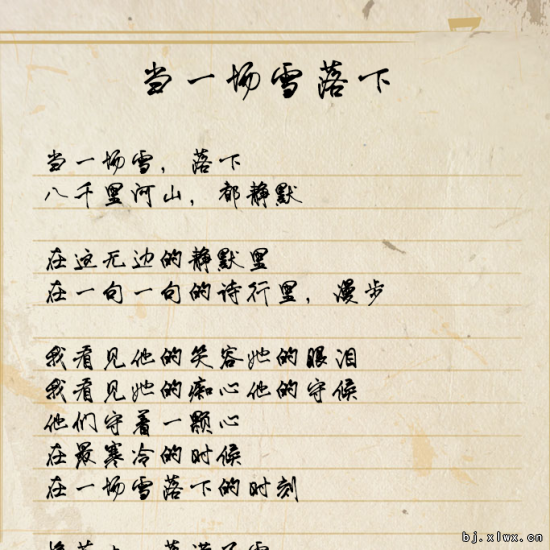 当一场雪落下
当一场雪，落下
八千里河山，都静默
在这无边的静默里
在一句一句的诗行里，漫步
我看见他的笑容她的眼泪
我看见她的痴心他的守候
他们守着一颗心
在最寒冷的时候
在一场雪落下的时刻
bj.xlwx.cn